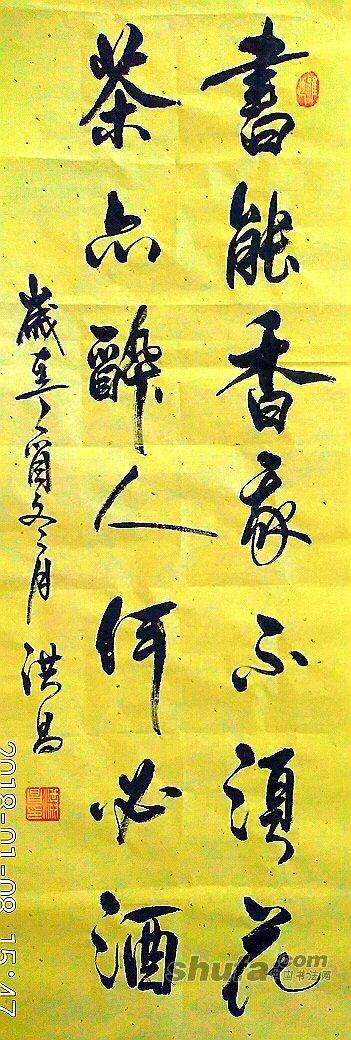 書能香我不須花
茶亦醉人何必酒
歲在丁酉冬月 洪昌
2018-01-08 15:47
shufa.com
中国书法网